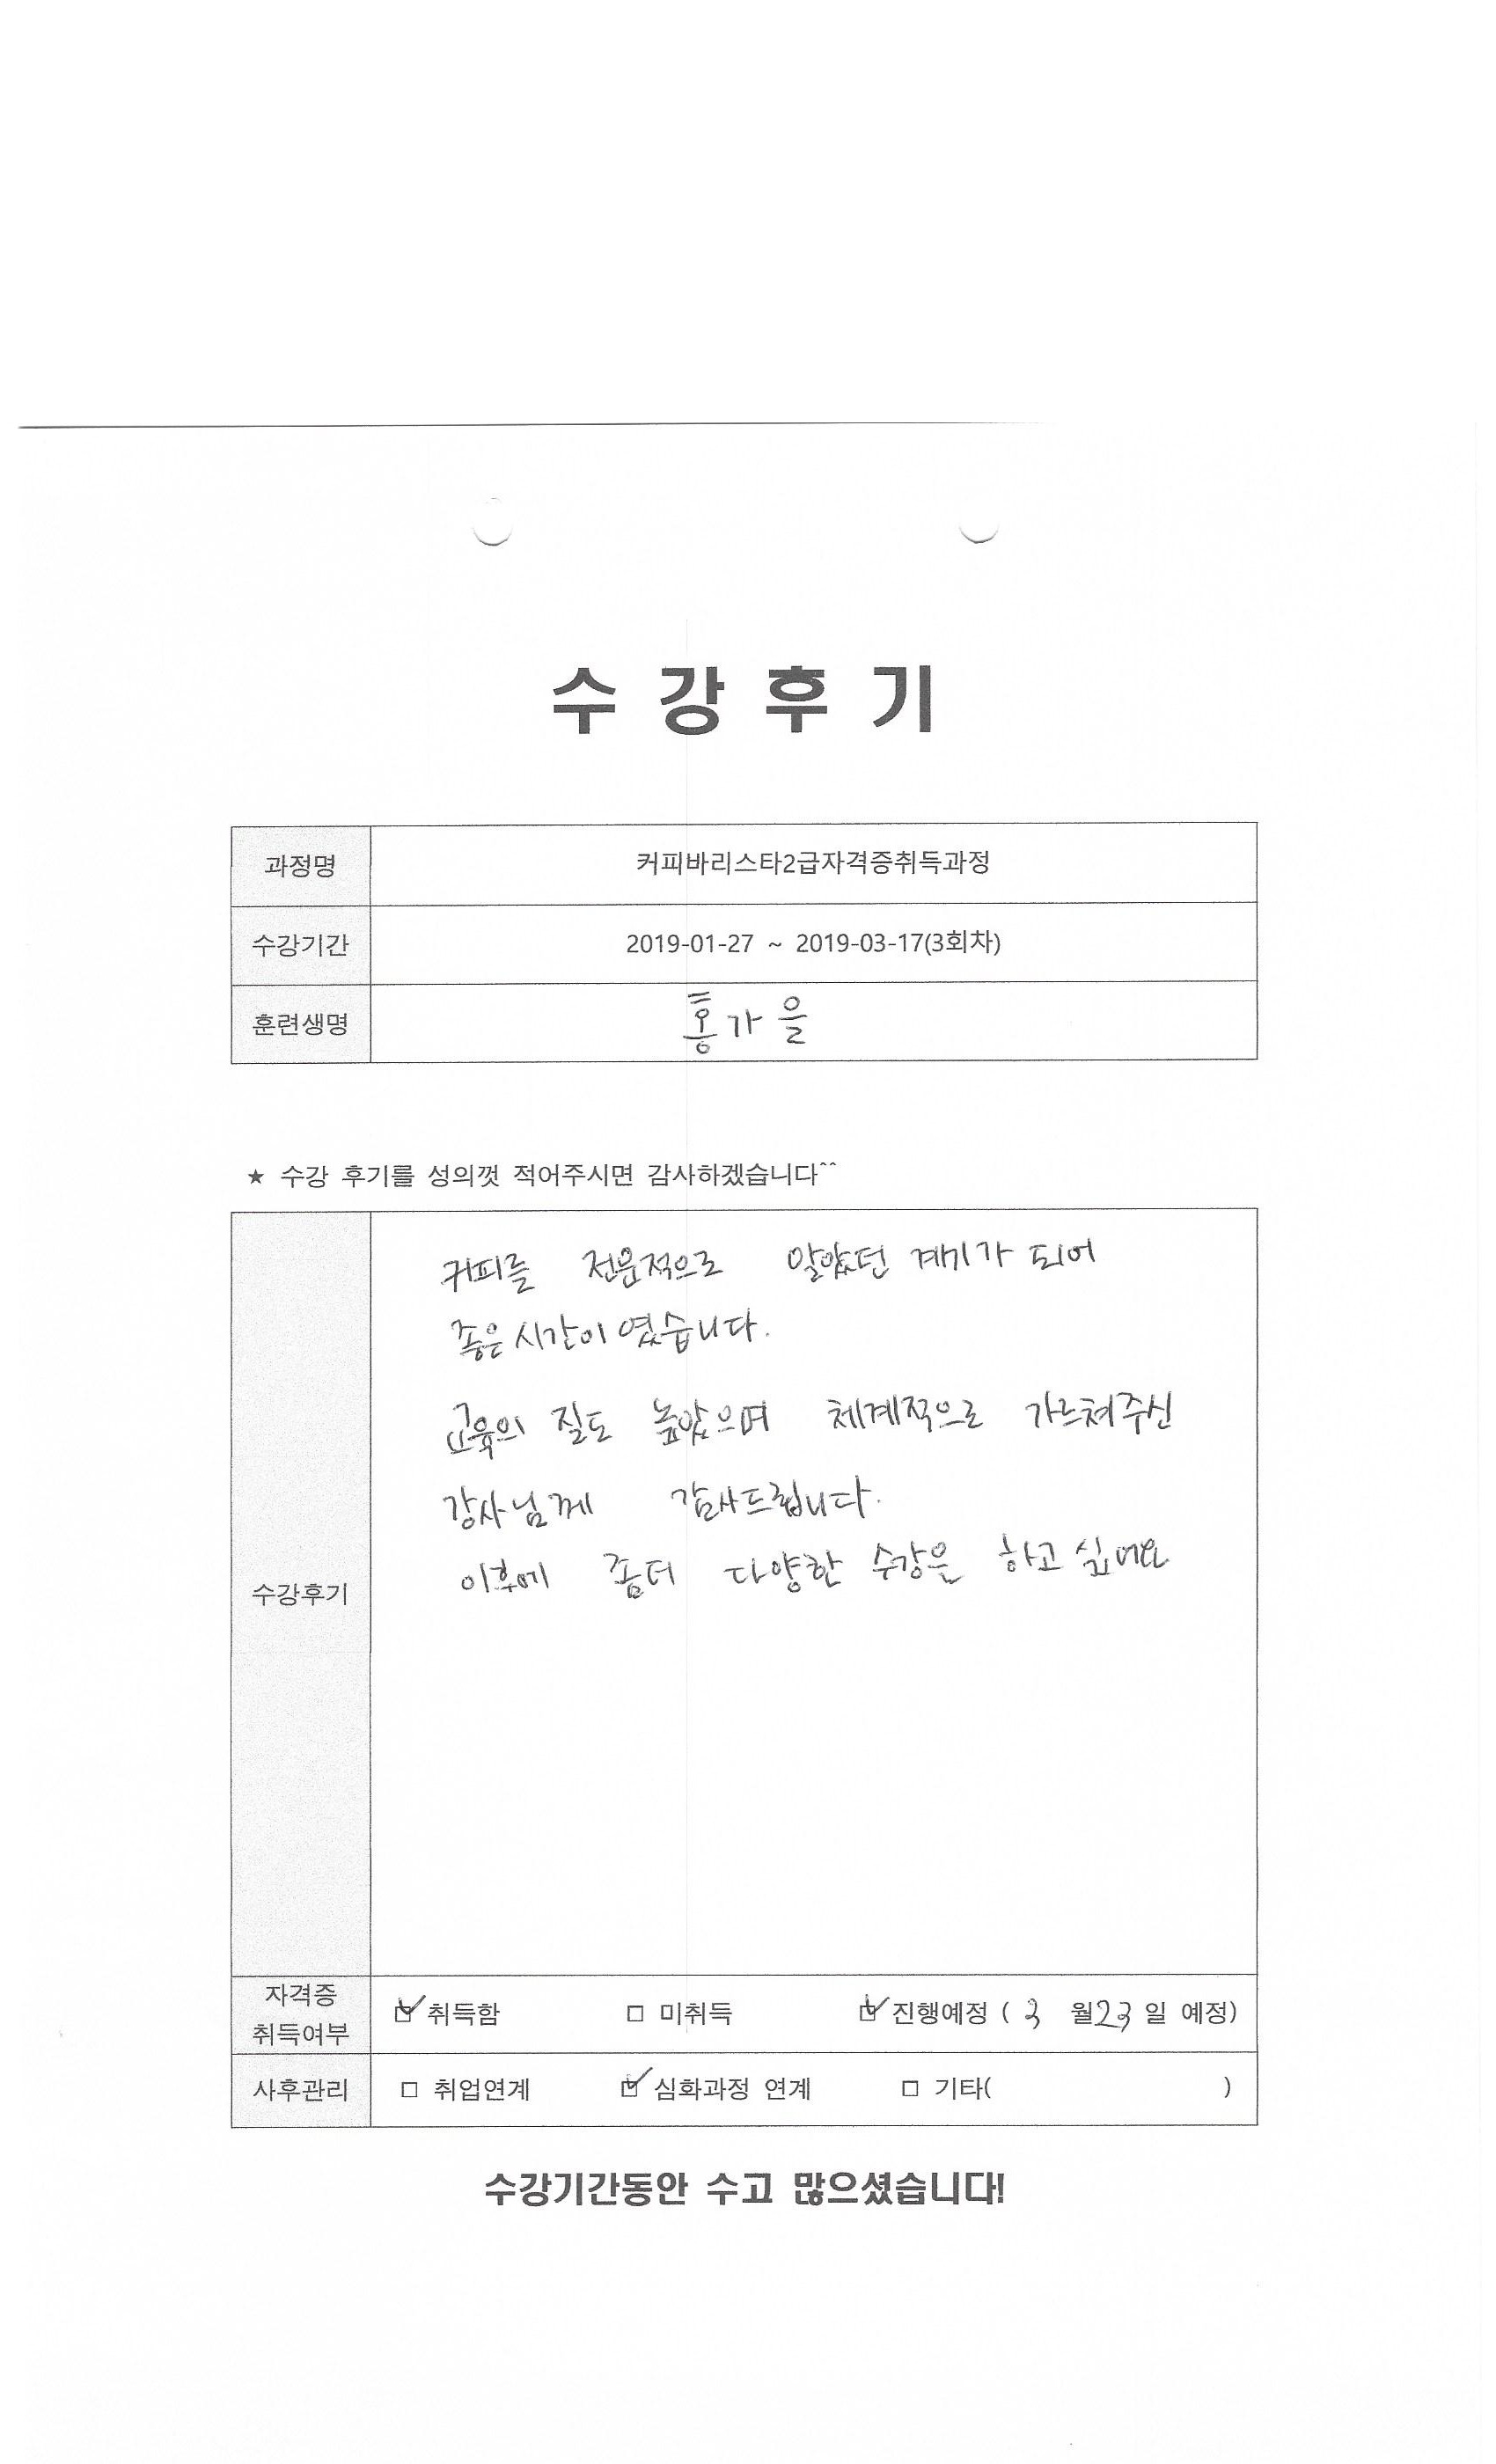 수 강 후 기
과정명 커피바리스타2급자격증취득과정
수강기간 2019-01-27 ~ 2019-03-17(3회차)
훈련생명 홍가을
★ 수강 후기를 성의껏 적어주시면 감사하겠습니다^^
커피를 전문적으로 알았던 계기가 되어
좋은 시간이였습니다.
교육의 질도 높았으며 체계적으로 가르쳐주신
강사님께 감사드립니다.
이후에 좀더 다양한 수강은 하고 싶어요
수강후기
자격증
취득여부
☑ 취득함 □ 미취득 ☑ 진행예정 ( 3 월 23 일 예정)
사후관리 □ 취업연계 ☑ 심화과정 연계 □ 기타( )
수강기간동안 수고 많으셨습니다!